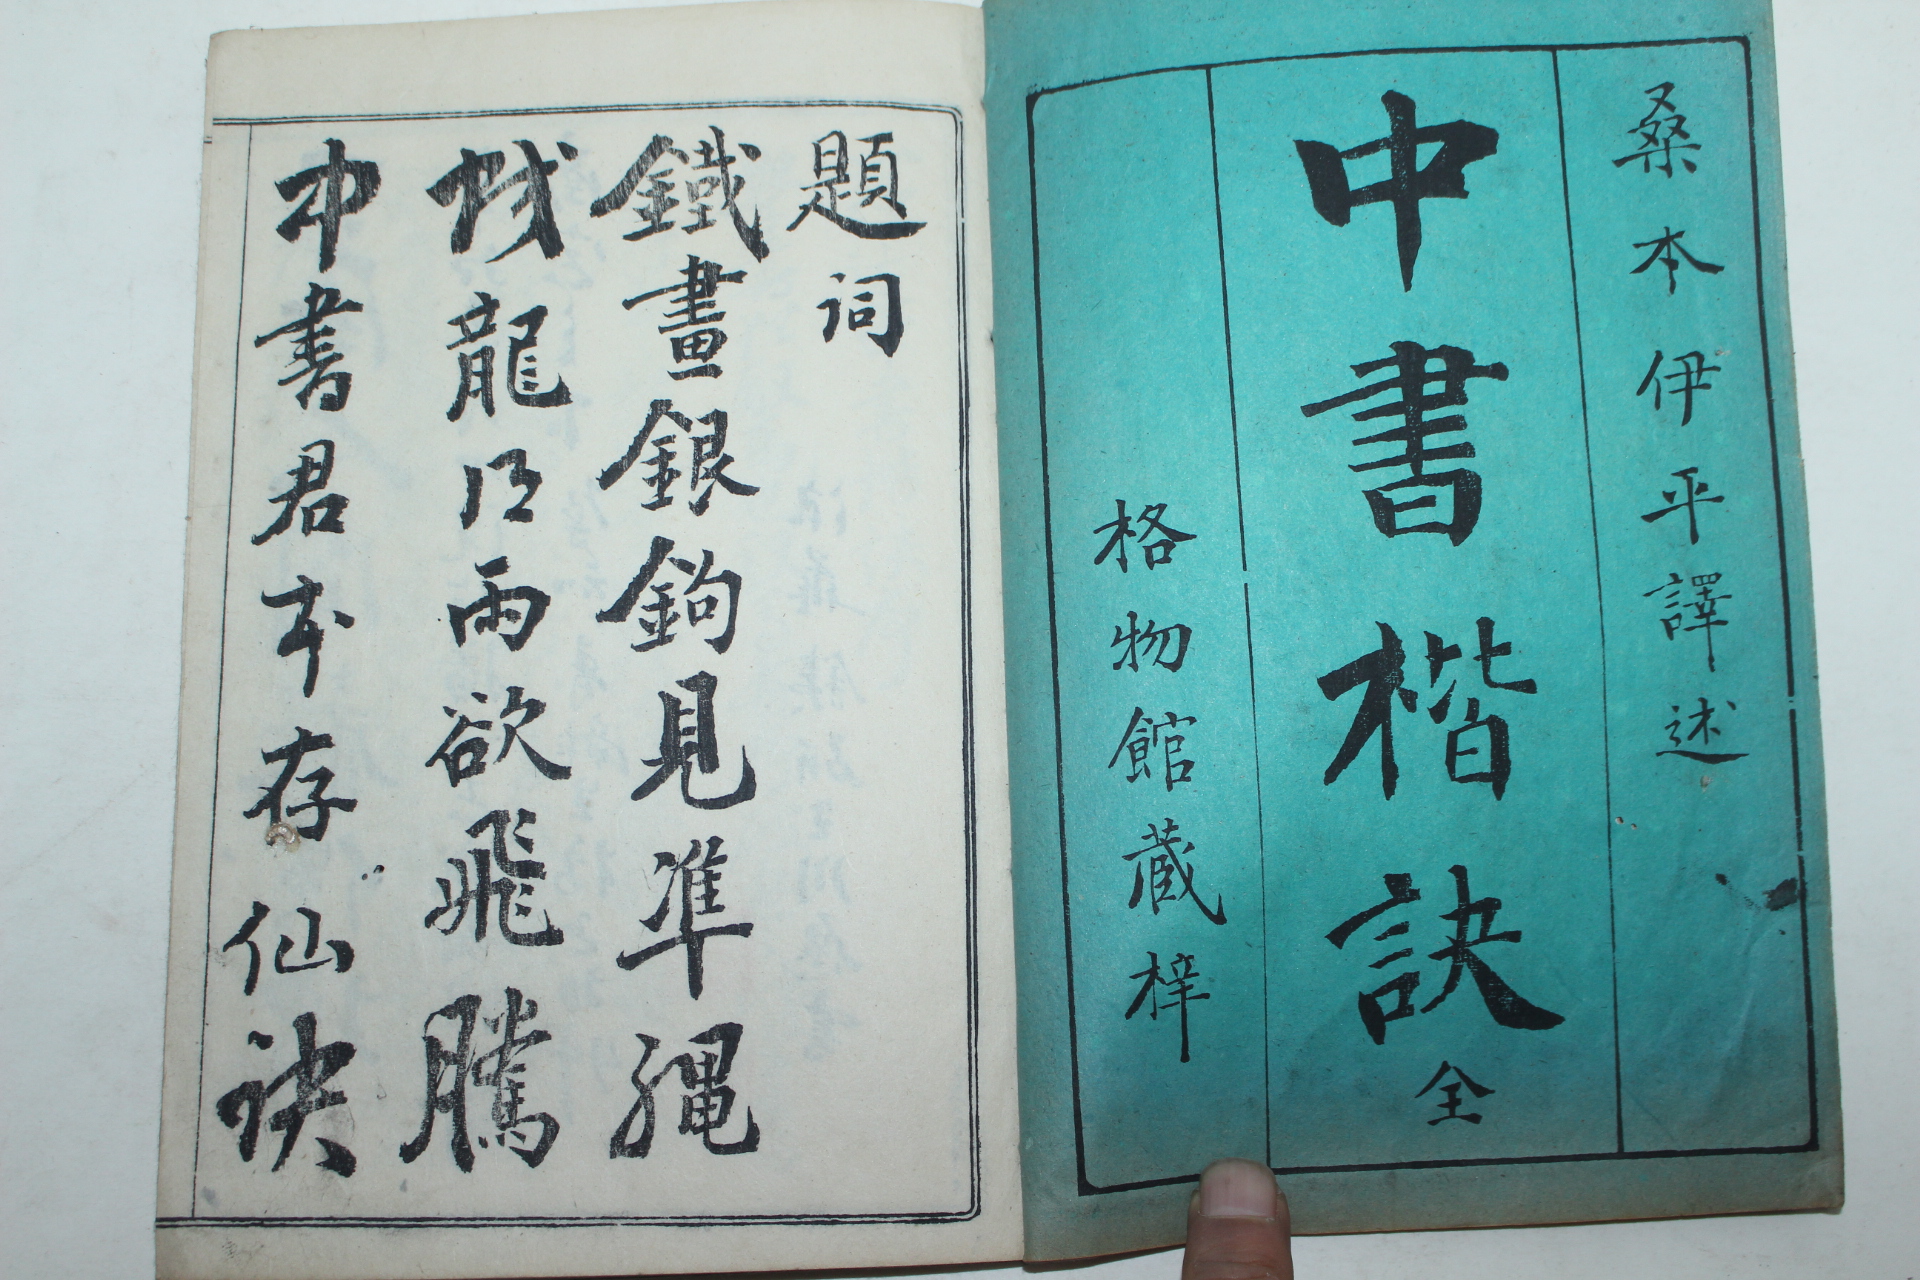 桑本伊平譯述
中書楷訣 全
格物館蔵梓
題詞
鐵畫銀鉤見凖縄
蛟龍得雨欲飛騰
中書君本存仙訣